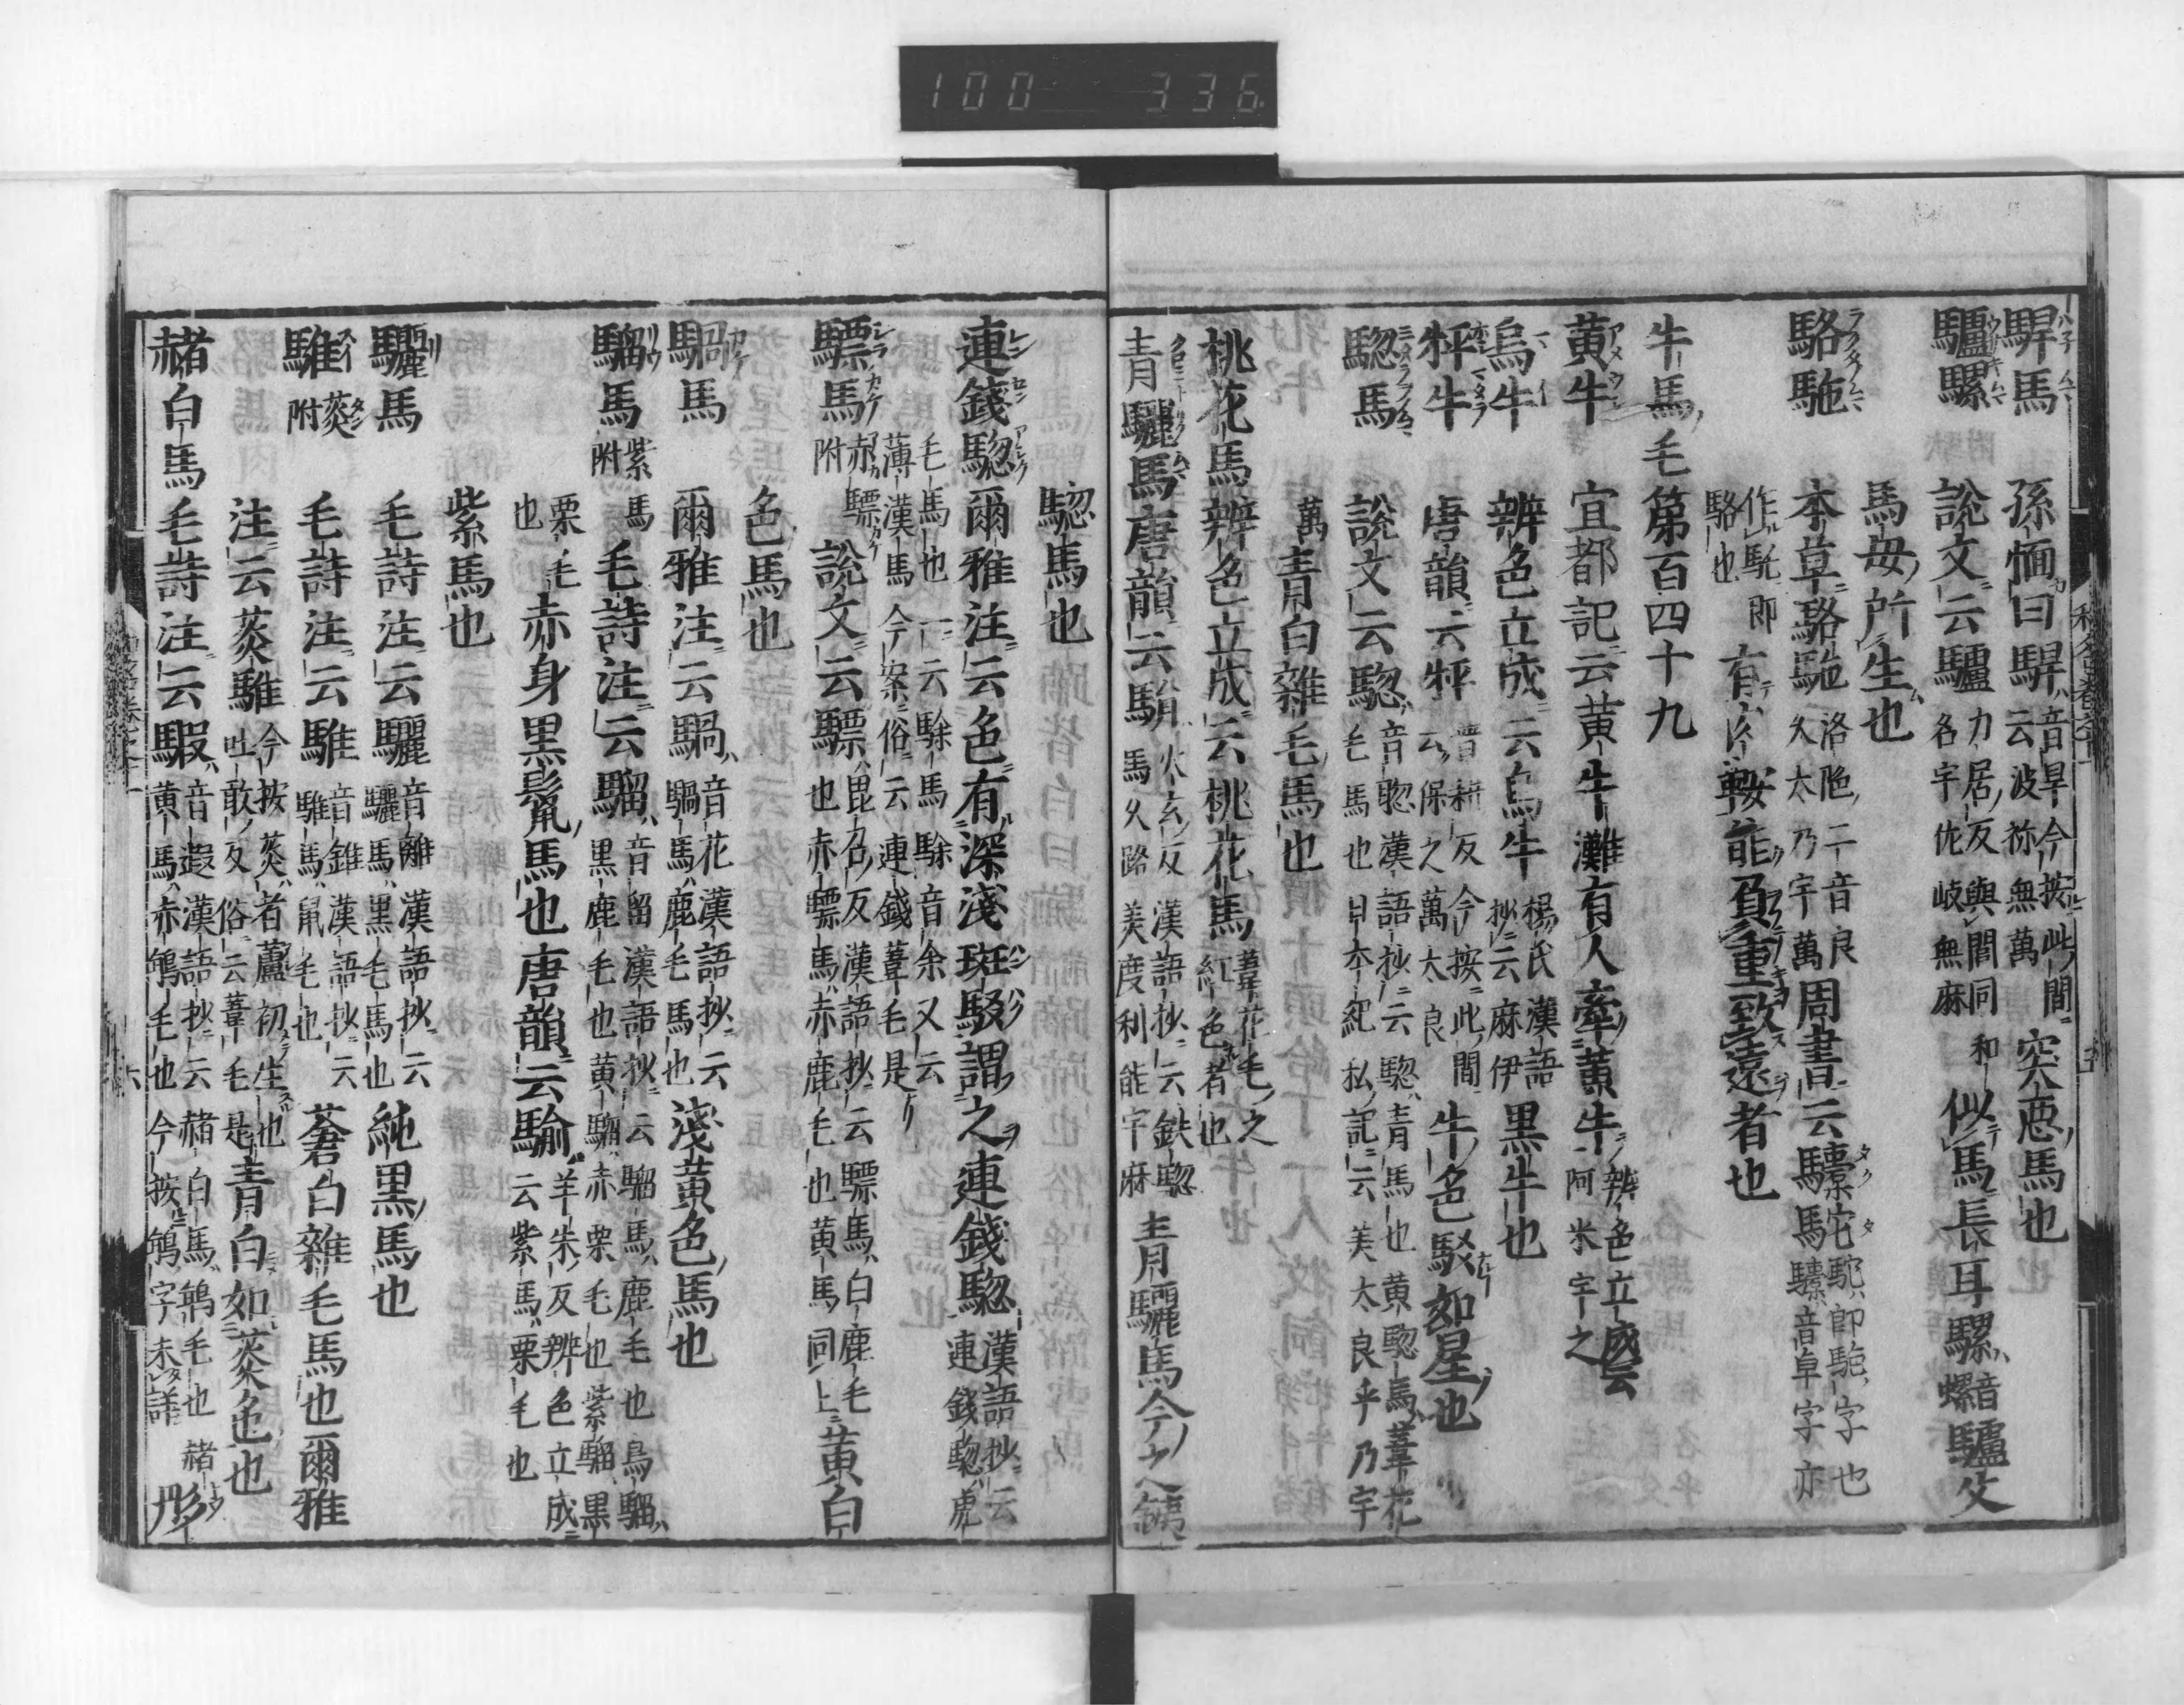 100 336
駻馬 孫愐曰駻音旱今按此間云波祢無萬突惡馬也
驢騾 說文云驢力居反與閭同和名宇佐岐無麻似馬長耳騾音螺驢父
馬母所生也
駱駞 本草駱駞洛陁二音良久太乃宇萬周書云驝馳駞即駞字也驝音卓字亦
作駞即駱也有肉鞍能負重致遠者也
牛馬毛第百四十九
黃牛 宜都記云黃牛灘有人牽黃牛辨色立成云阿米宇之
烏牛 辨色立成云烏牛楊氏漢語抄云麻伊黑牛也
牪牛 唐韻云牪普耕反今按此間云保之萬太良牛色駁如星也
騘馬 說文云騘音聦漢語抄云騘青馬也黃騘馬葦花毛馬也日本紀私記云美太良乎乃宇
萬青白雜毛馬也
桃花馬 辨色立成云桃花馬葦花毛之紅色者也
青驪馬 唐韻云駽火玄反漢語抄云鉄騘馬久路美度利能宇麻青驪馬今之鐵
騘馬也
連錢騘 爾雅注云色有深淺斑駁謂之連錢騘漢語抄云連錢騘虎
毛馬也一云駼馬駼音余又云薄漢馬今案俗云連錢葦毛是
驃馬 赤驃附 說文云驃毘召反漢語抄云驃馬白鹿毛也赤驃馬赤鹿毛也黃馬同上黃白
色馬也
騧馬 爾雅注云騧音花漢語抄云騧馬鹿毛馬也淺黃色馬也
騮馬 紫馬附 毛詩注云騮音留漢語抄云騮馬鹿毛也烏騮黑鹿毛也黃騮赤栗毛也紫騮黑
栗毛也赤身黑鬣馬也唐韻云騟羊朱反辨色立成云紫馬栗毛也
紫馬也
驪馬 毛詩注云驪音離漢語抄云驪馬黑毛馬也純黑馬也
騅 菼附 毛詩注云騅音錐漢語抄云騅馬鼠毛也蒼白雜毛馬也爾雅
注云菼騅今按菼者蘆初生也吐敢反俗云葦毛是青白如菼色也
赭白馬 毛詩注云騢音遐漢語抄云赭白馬鵇毛也赭黃馬赤鵇毛也今按鵇字未詳彤